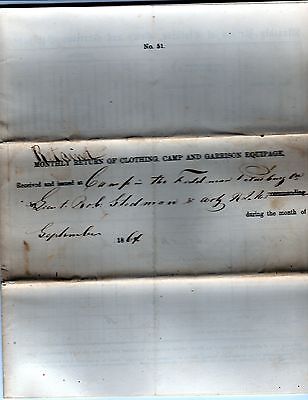 No. 51.
MONTHLY RETURN OF CLOTHING, CAMP AND GARRISON EQUIPAGE,
Received and issued at Camp in the Field near Petersburg Va
Lieut. Rob. Stedman
commanding,
during the month of
September 1864